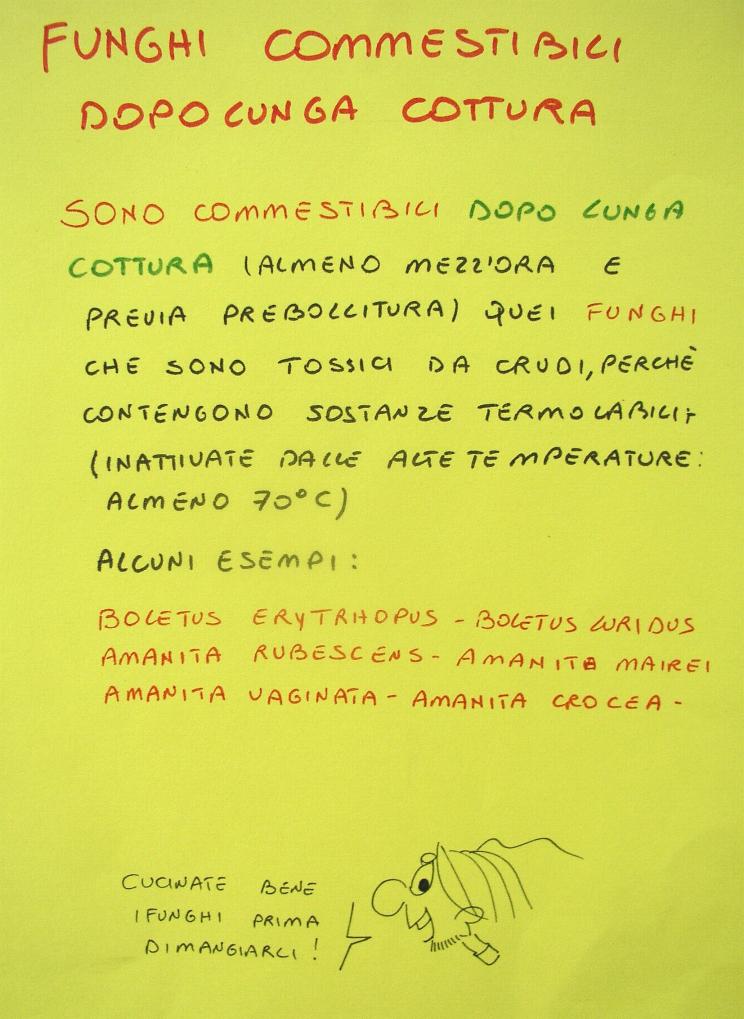 FUNGHI COMMESTIBILI
DOPO LUNGA COTTURA
SONO COMMESTIBILI DOPO LUNGA
COTTURA (ALMENO MEZZ'ORA E
PREVIA PREBOLLITURA) QUEI FUNGHI
CHE SONO TOSSICI DA CRUDI, PERCHÈ
CONTENGONO SOSTANZE TERMOLABILI,
(INATTIVATE DALLE ALTE TEMPERATURE:
ALMENO 70°C)
ALCUNI ESEMPI:
BOLETUS ERYTRHOPUS - BOLETUS LURIDUS
AMANITA RUBESCENS - AMANITA MAIREI
AMANITA VAGINATA - AMANITA CROCEA -
CUCINATE BENE
I FUNGHI PRIMA
DI MANGIARLI!